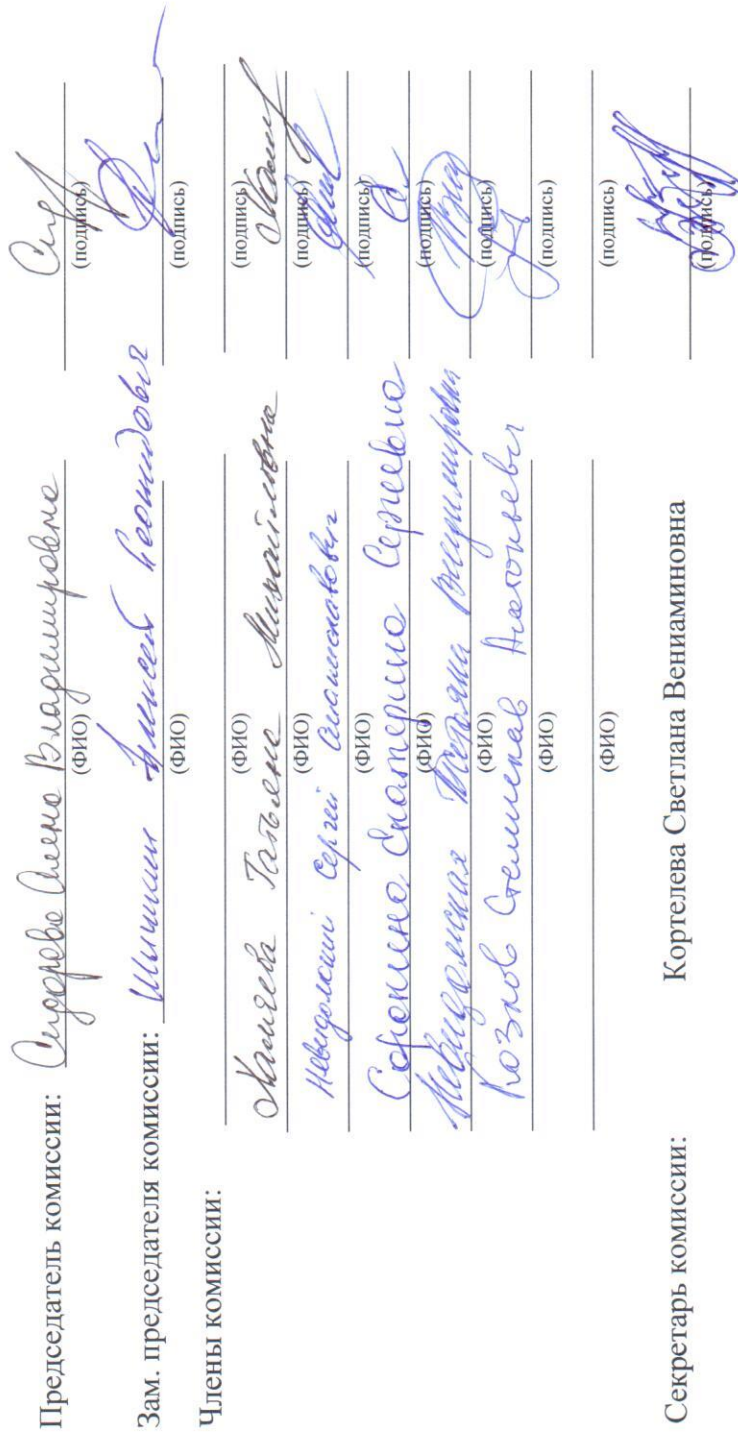 Председатель комиссии: Сидорова Алена Владимировна
(ФИО) (подпись)
Зам. председателя комиссии: Шишкин Алексей Леонидович
(ФИО) (подпись)
Члены комиссии:
(ФИО) (подпись)
Татьяна Михайловна
(ФИО) (подпись)
Невидомский Сергей
(ФИО) (подпись)
Сорокина Екатерина Сергеевна
(ФИО) (подпись)
Невидомская Татьяна Владимировна
(ФИО) (подпись)
Козлов Станислав Анатольевич
(ФИО) (подпись)
(ФИО)
Секретарь комиссии: Кортелева Светлана Вениаминовна
(подпись)